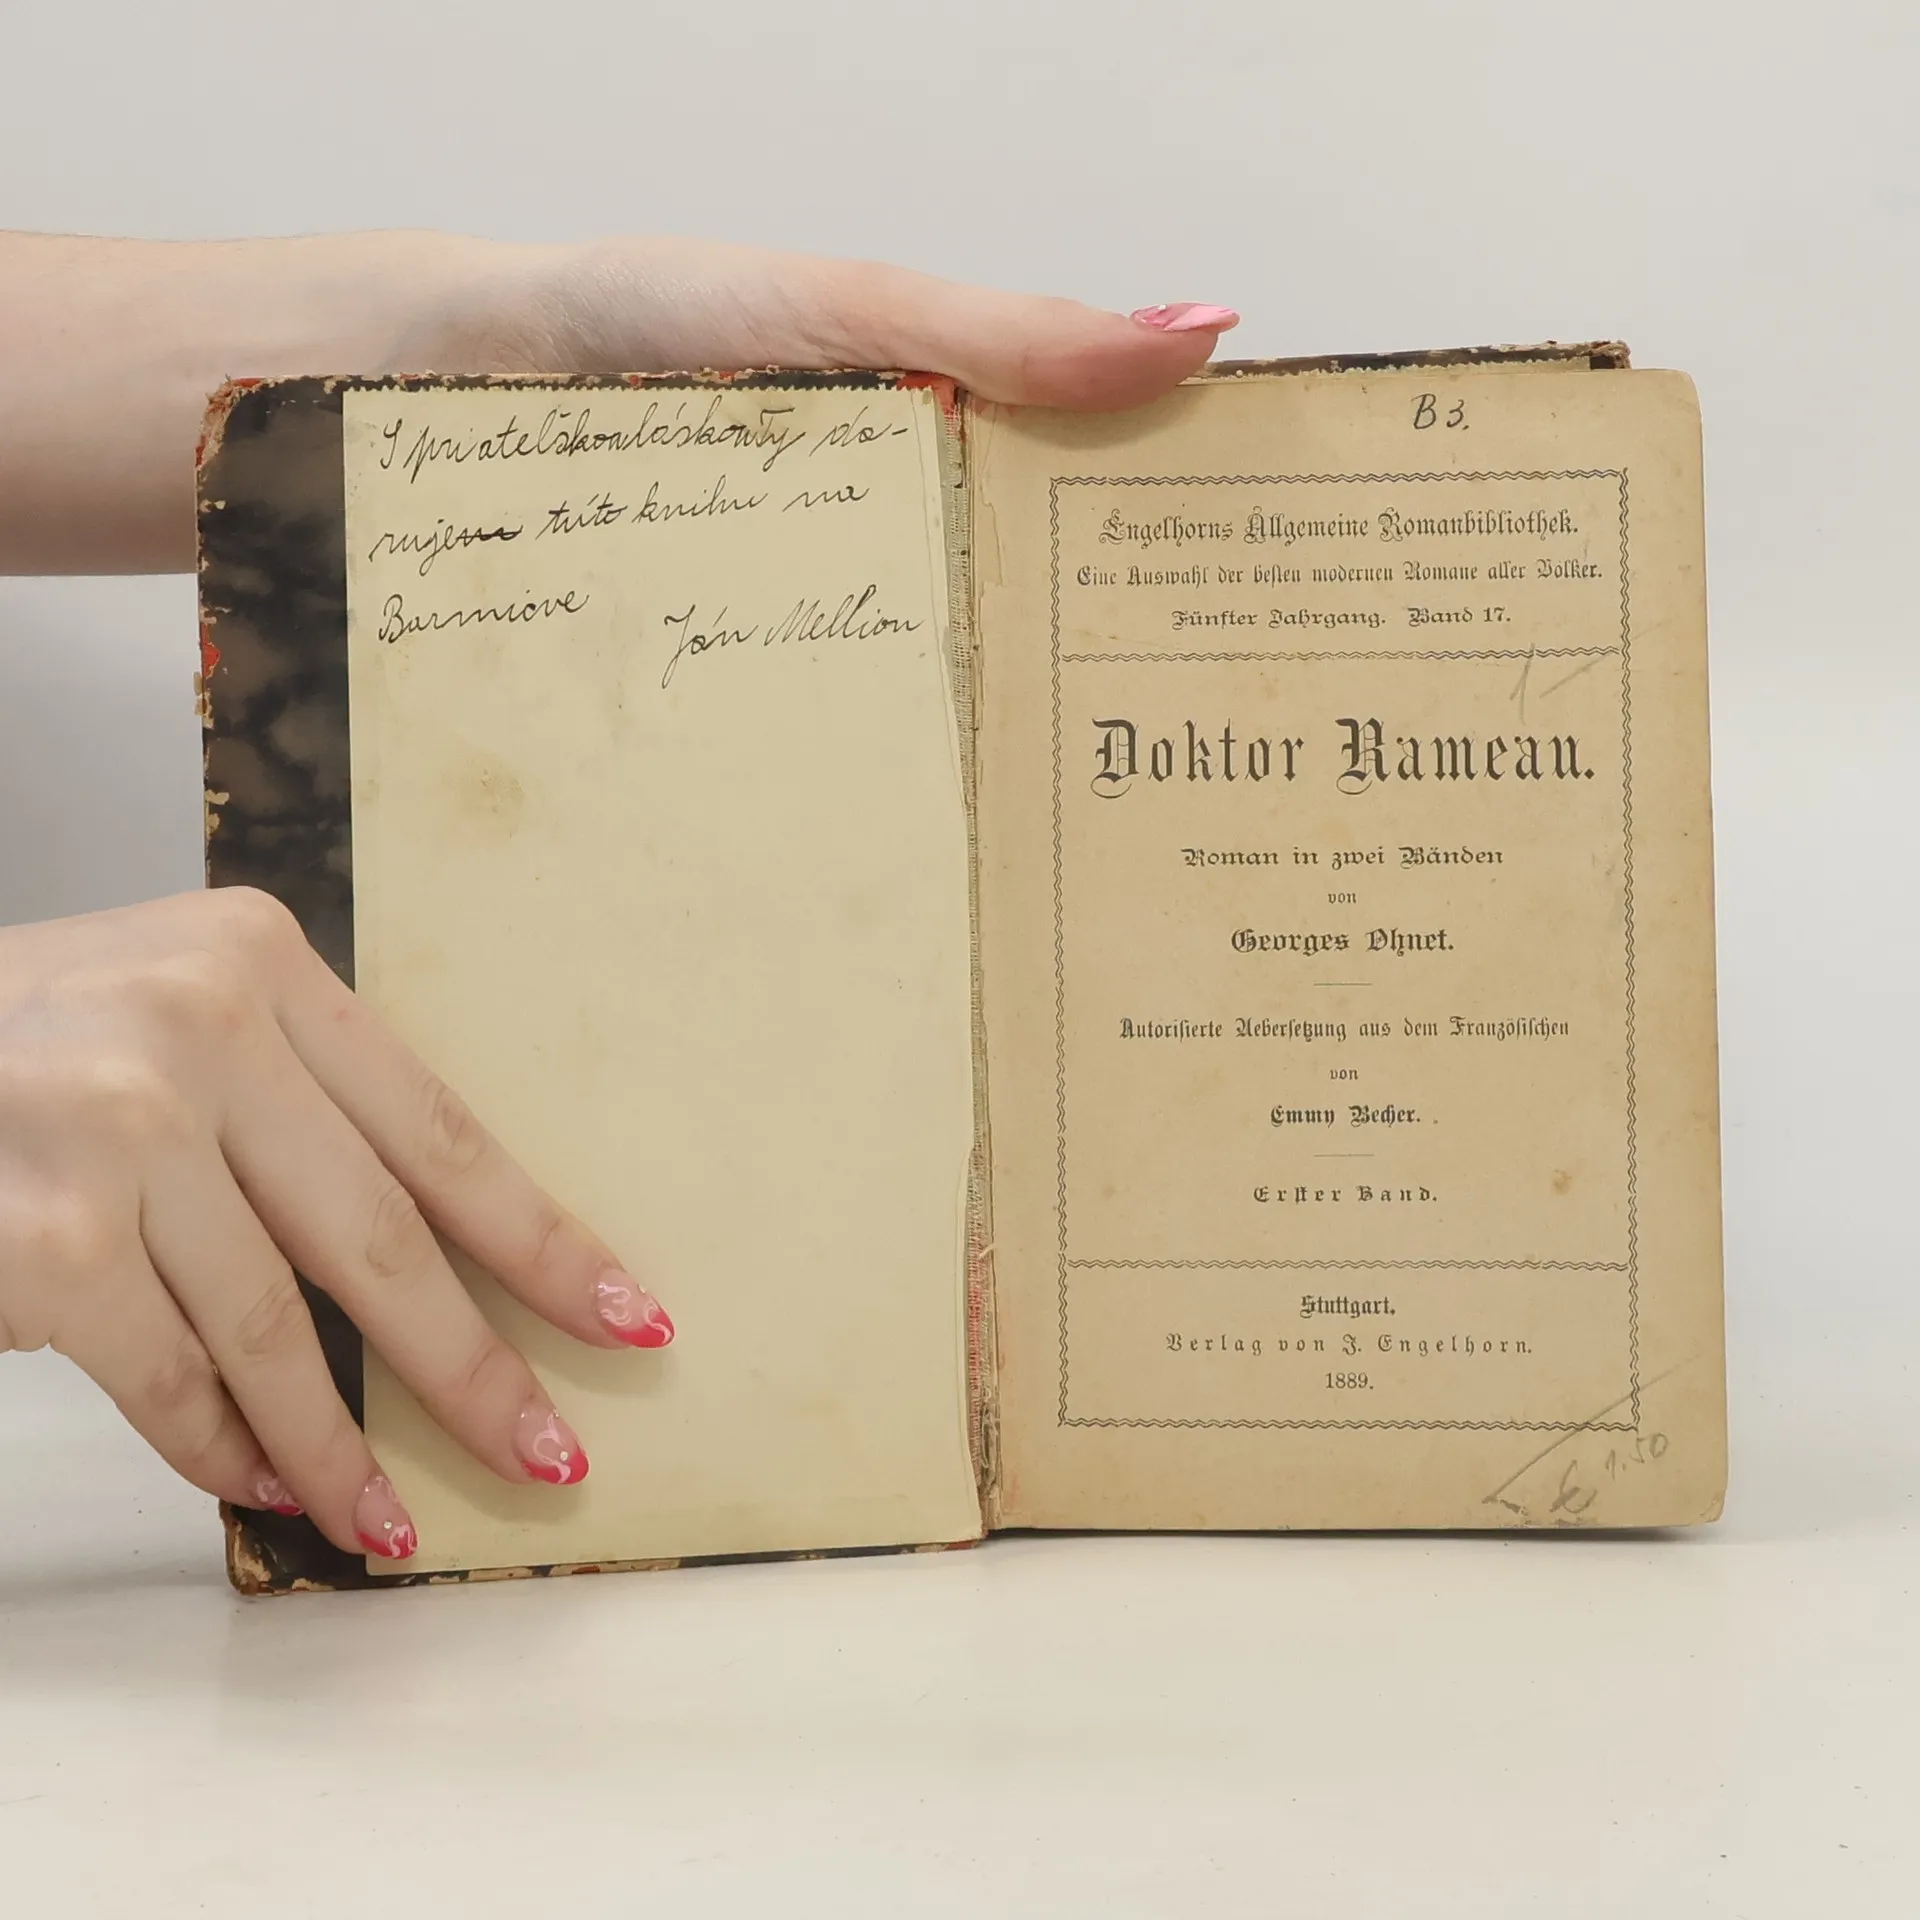 S priatelškou láskou Ty da-
rujem túto knihu na
Ján Mellion
B 3.
Engelhorns Allgemeine Romanbibliothek.
Eine Auswahl der besten modernen Romane aller Völker.
Fünfter Jahrgang. Band 17.
Doktor Rameau.
Roman in zwei Bänden
von
Georges Ohnet.
Autorisierte Uebersetzung aus dem Französischen
von
Emmy Becher.
Erster Band.
Stuttgart.
Verlag von J. Engelhorn.
1889.
1.50